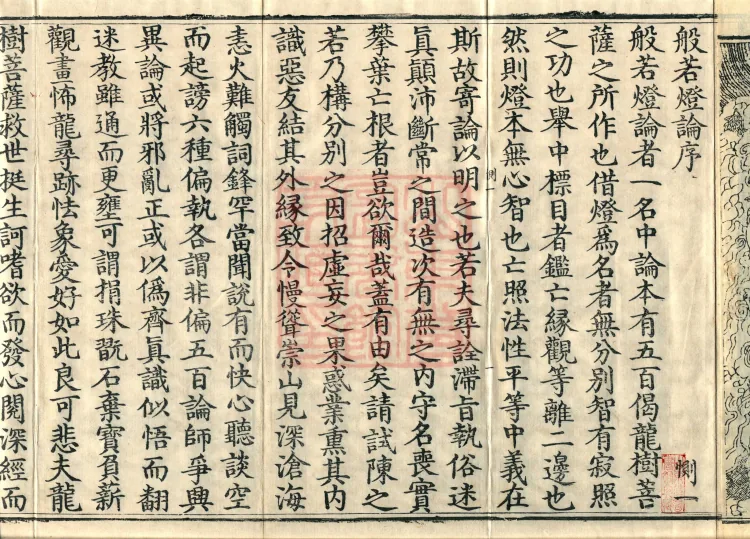 般若燈論序
惻一
般若燈論者一名中論本有五百偈龍樹菩
薩之所作也借燈爲名者無分別智有寂照
之功也舉中標目者鑑亡縁觀等離二邊也
然則燈本無心智也亡照法性平等中義在
惻一
斯故寄論以明之也若夫尋詮滯旨執俗迷
眞顚沛斷常之間造次有無之內守名喪實
攀葉亡根者豈欲爾哉蓋有由矣請試陳之
若乃構分別之因招虛妄之果惑業熏其內
識惡友結其外縁致令慢聳崇山見深滄海
恚火難觸詞鋒罕當聞說有而快心聽談空
而起謗六種偏執各謂非偏五百論師爭興
異論或將邪亂正或以偽齊眞識似悟而翻
迷教雖通而更壅可謂捐珠翫石棄寶負薪
觀畫怖龍尋跡怯象愛好如此良可悲夫龍
樹菩薩救世挺生訶嗜欲而發心閱深經而